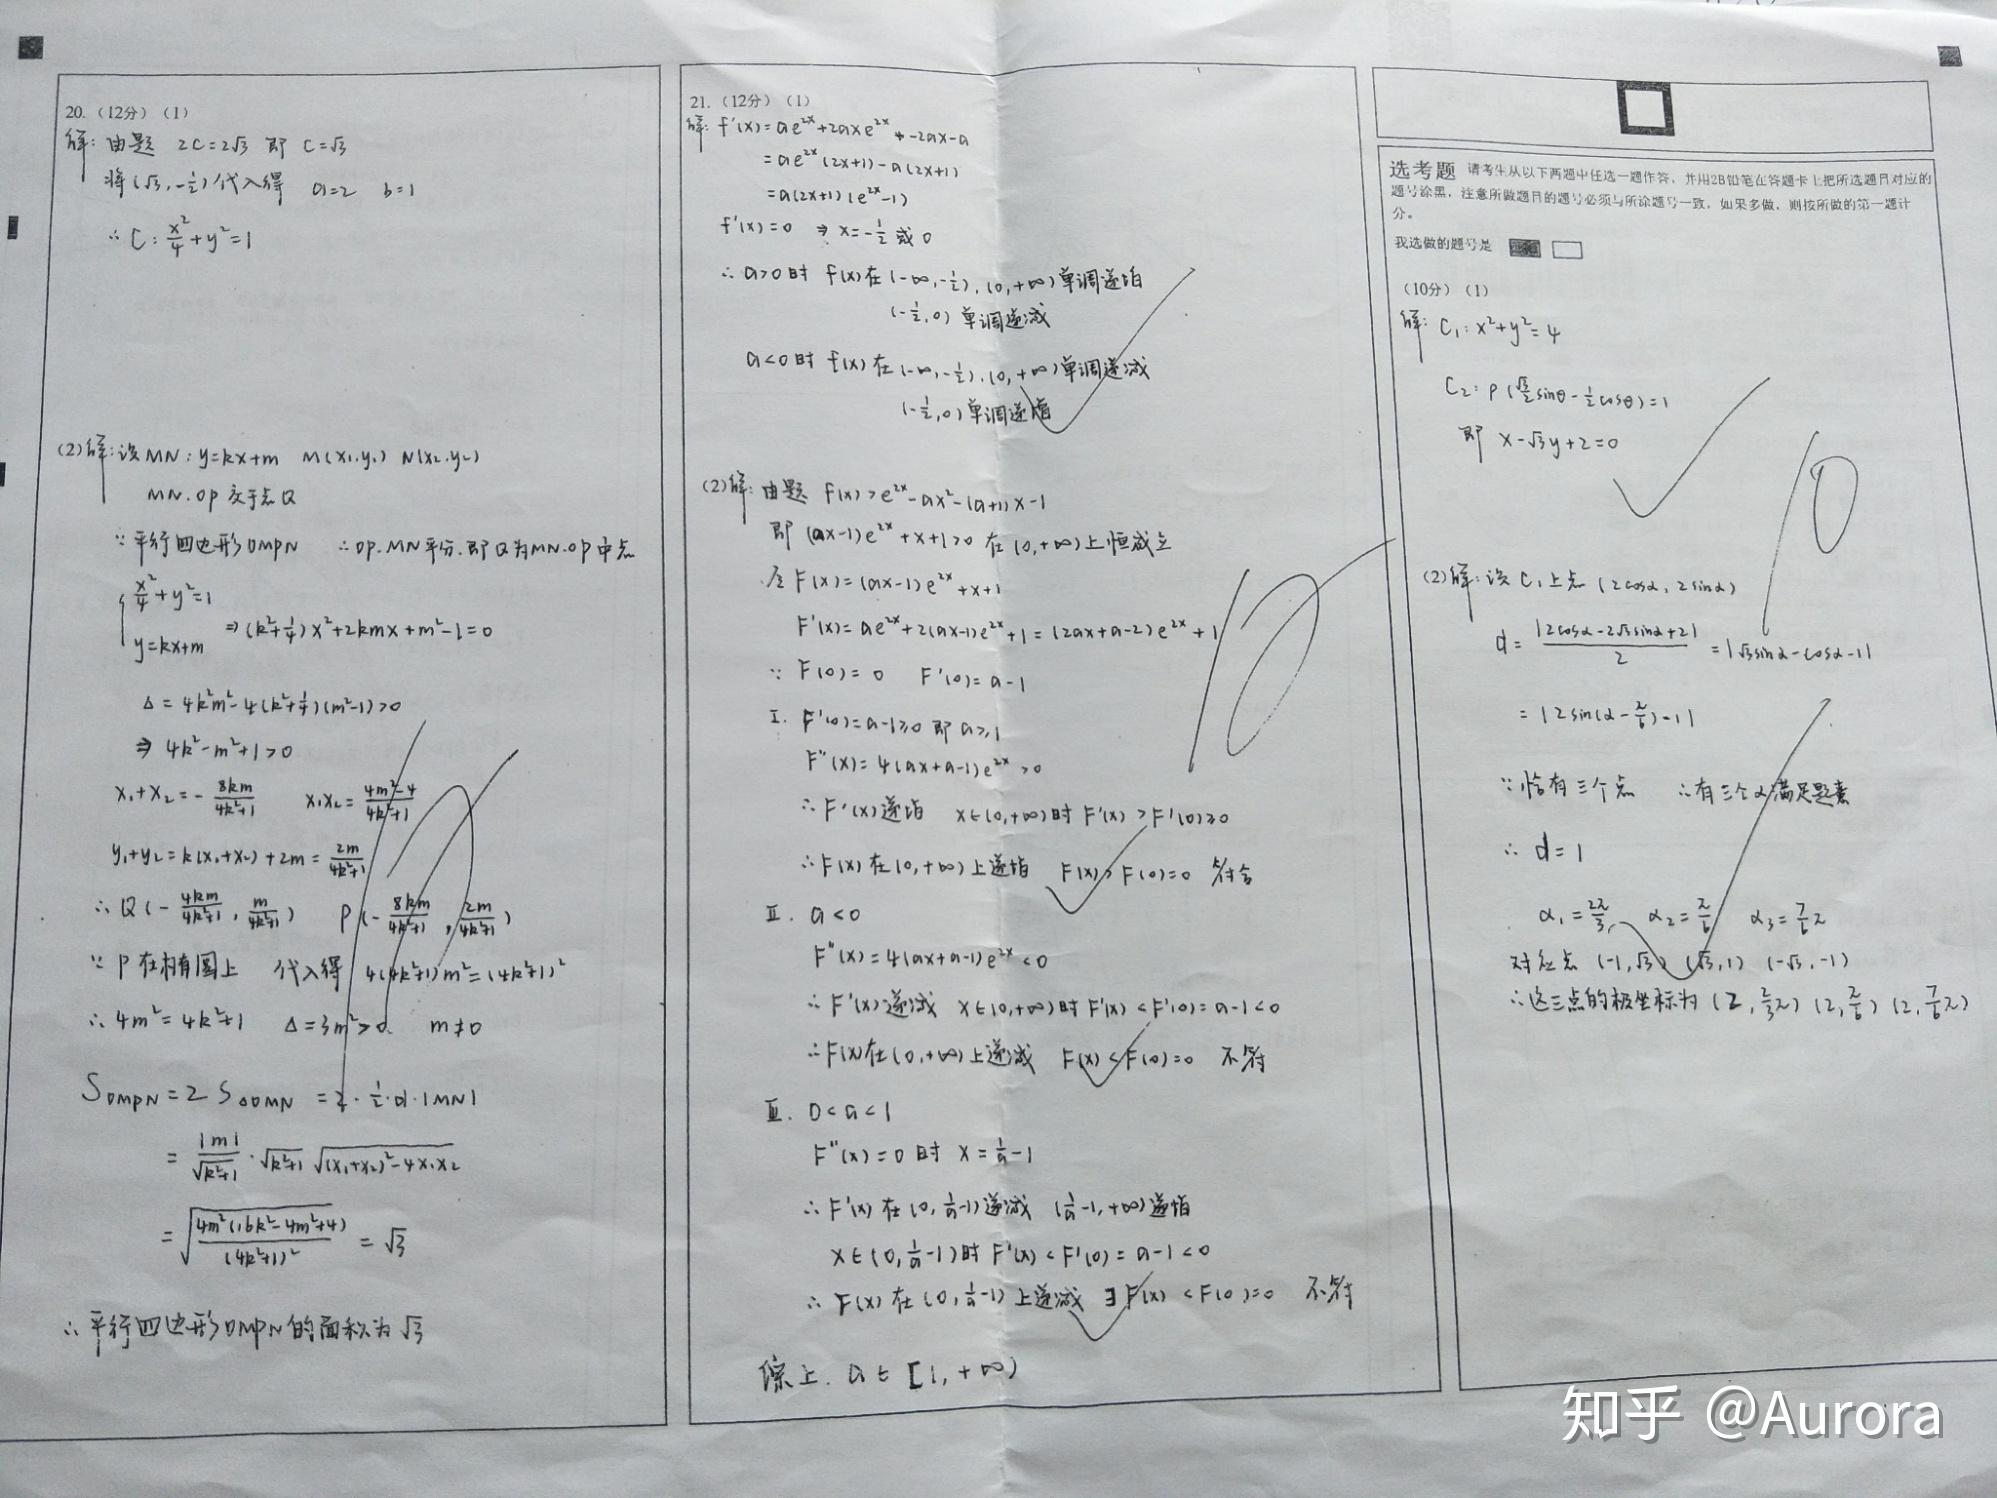 20.（12分）（1）
解：由题 2C=2√3 即 C=√3
将(√3,-1/2)代入得 a=2 b=1
∴ C: x²/4+y²=1
(2)解：设MN：y=kx+m M(x₁,y₁) N(x₂,y₂)
MN.OP交于点Q
∵平行四边形OMPN ∴OP.MN平分.即Q为MN.OP中点
x²/4+y²=1
y=kx+m ⇒(k²+1/4)x²+2kmx+m²-1=0
Δ=4k²m²-4(k²+1/4)(m²-1)>0
⇒ 4k²-m²+1>0
x₁+x₂=-8km/4k²+1 x₁x₂=4m²-4/4k²+1
y₁+y₂=k(x₁+x₂)+2m=2m/4k²+1
∴Q(-4km/4k²+1, m/4k²+1) P(-8km/4k²+1, 2m/4k²+1)
∵P在椭圆上 代入得 4(4k²+1)m²=(4k²+1)²
∴4m²=4k²+1 Δ=3m²>0 m≠0
S OMPN=2 S△OMN =2·1/2·d·|MN|
=|m|/√k²+1·√k²+1 √(x₁+x₂)²-4x₁x₂
=√4m²(16k²-4m²+4)/(4k²+1)² =√3
∴平行四边形OMPN的面积为√3
21.（12分）（1）
解：f'(x)=ae^2x+2axe^2x+-2ax-a
=ae^2x(2x+1)-a(2x+1)
=a(2x+1)(e^2x-1)
f'(x)=0 ⇒ x=-1/2 或 0
∴ a>0时 f(x)在(-∞,-1/2),(0,+∞)单调递增
(-1/2,0) 单调递减
a<0时 f(x)在(-∞,-1/2),(0,+∞)单调递减
(-1/2,0)单调递增
(2)解：由题 f(x)>e^2x-ax²-(a+1)x-1
即 (ax-1)e^2x+x+1>0 在(0,+∞)上恒成立
令F(x)=(ax-1)e^2x+x+1
F'(x)=ae^2x+2(ax-1)e^2x+1=(2ax+a-2)e^2x+1
∵ F(0)=0 F'(0)=a-1
Ⅰ. F'(0)=a-1≥0 即a≥1
F''(x)=4(ax+a-1)e^2x>0
∴F'(x)递增 x∈(0,+∞)时F'(x)>F'(0)≥0
∴F(x)在(0,+∞)上递增 F(x)>F(0)=0 符合
Ⅱ. a<0
F''(x)=4(ax+a-1)e^2x<0
∴F'(x)递减 x∈(0,+∞)时F'(x)<F'(0)=a-1<0
∴F(x)在(0,+∞)上递减 F(x)<F(0)=0 不符
Ⅲ. 0<a<1
F''(x)=0时 x=1/a-1
∴F'(x)在(0,1/a-1)递减 (1/a-1,+∞)递增
x∈(0,1/a-1)时F'(x)<F'(0)=a-1<0
∴F(x)在(0,1/a-1)上递减 ∃F(x)<F(0)=0 不符
综上. a∈[1,+∞)
10
选考题 请考生从以下两题中任选一题作答，并用2B铅笔在答题卡上把所选题目对应的
题号涂黑，注意所做题目的题号必须与所涂题号一致，如果多做，则按所做的第一题计
分。
我选做的题号是
（10分）（1）
解：C₁：x²+y²=4
C₂：ρ(√3/2sinθ-1/2cosθ)=1
即 x-√3y+2=0
10
(2)解：设C₁上点(2cosα,2sinα)
d=|2cosα-2√3sinα+2|/2=|√3sinα-cosα-1|
=|2sin(α-π/6)-1|
∵恰有三个点 ∴有三个α满足题意
∴ d=1
α₁=2π/3, α₂=π/6 α₃=7/6π
对应点(-1,√3)(√3,1)(-√3,-1)
∴这三点的极坐标为(2,2/3π)(2,π/6)(2,7/6π)
知乎 @Aurora